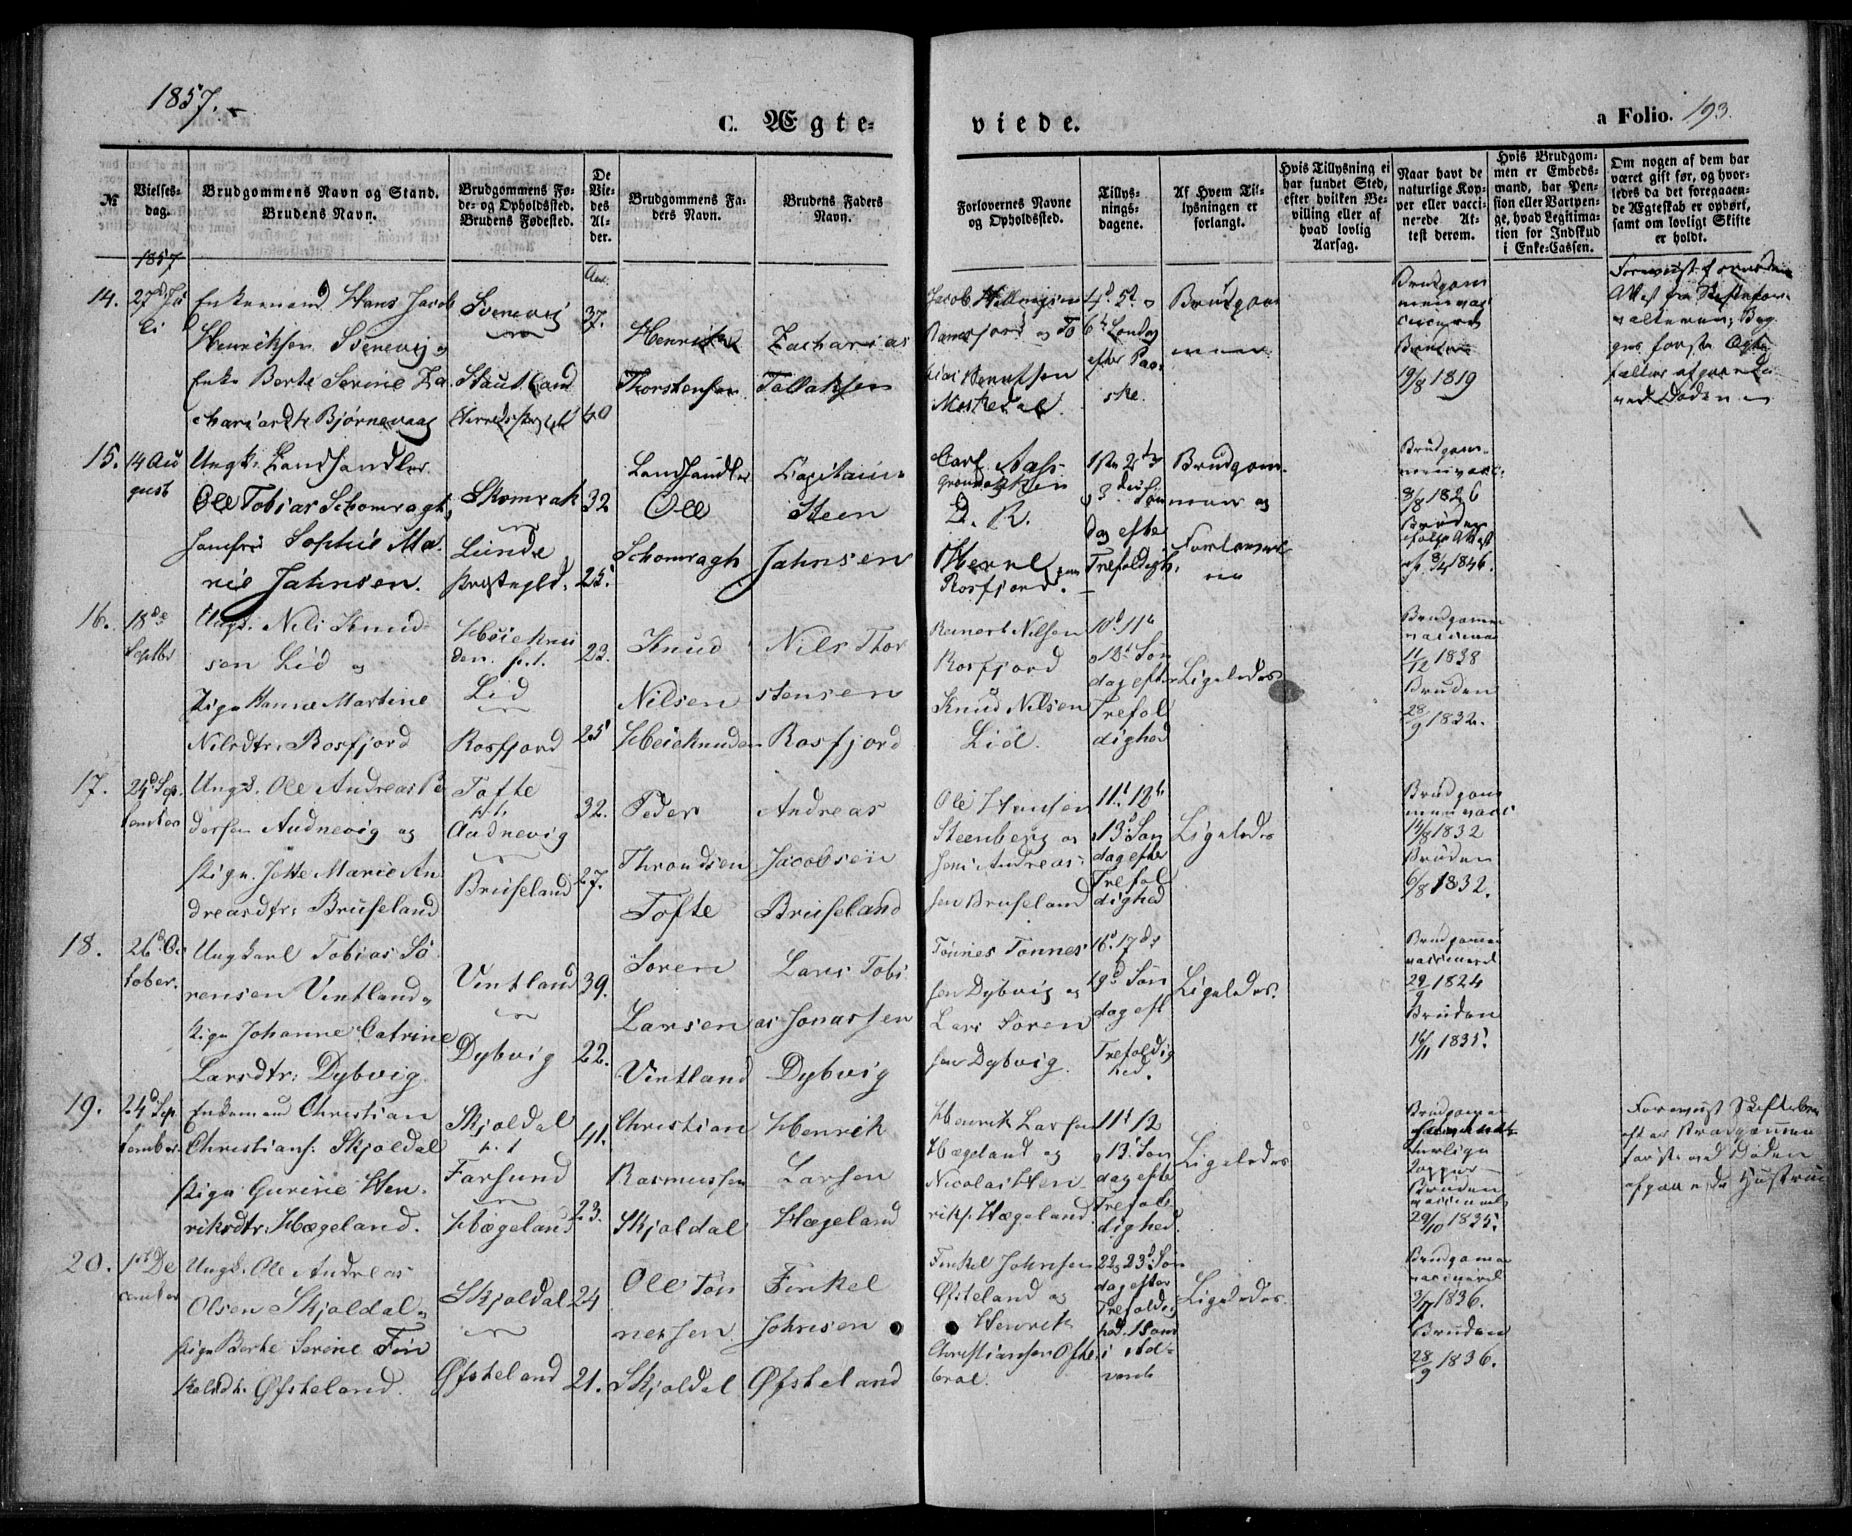 1857.
C. Ægte-
viede.
a Folio. 193.
№
Vielses-
dag.
Brudgommens Navn og Stand.
Brudens Navn.
Brudgommens Fø-
de- og Opholdssted.
Brudens Fødested.
De
Vie-
des
Al-
der.
Brudgommens Fa-
ders Navn.
Brudens Faders
Navn.
Forlovernes Navne
og Opholdssted.
Tillys-
nings-
dagene.
Af Hvem Til-
lysningen er
forlangt.
Hvis Tillysning ei
har fundet Sted,
efter hvilken Be-
villing eller af
hvad lovlig
Aarsag.
Naar havt de
naturlige Kop-
per eller vacci-
nerede. At-
test derom.
Hvis Brudgom-
men er Embeds-
mand, har Pen-
sion eller Vartpen-
ge, hvad Legitima-
tion for Indskud
i Enke-Cassen.
Om nogen af dem har
været gift før, og hvor-
ledes da det foregaaen-
de Ægteskab er ophørt,
samt om lovligt Skifte
er holdt.
1857
14.
27d Ju
li
Enkemand Hans Jacob
Henriksen Svenevig og
Enke Berte Serine Za
chariasdtr Bjørnevaag
Svenevig
Stautland
37.
40
Henrik
Thorstensen
Zacharias
Tallaksen
Jacob
4d 5t og
6te Søndag
efter Paa-
ske.
Brudgom
men
Brudgom
men vac
Bruden
19/8 1819
ved Døden
15.
14 Au
gust
Ungk. Landhandler
Ole Tobias Schomragh,
Jomfru Sophie Ma-
rie Jahnsen.
Skomrak
Lunde
Præstegjeld.
32
25.
Landhandler
Ole
Schomragh
Capitain
Steen
Jahnsen
Carl Aas-
D. R.
Rosfjord.
1ste 2d
og 3die Søn
dag efter
Trefoldigh.
Brudgom-
men og
Brudgom-
men vacc.
3/8 1826
Bruden
ifølge Attest
af 3/4 1846.
16.
18de
Septbr
Ungk. Nils Knud-
sen Lid og
Pige Hanne Martine
Nilsdtr. Rosfjord
Heieknu
den p.t.
Lid
Rosfjord
23.
25
Knud
Nilsen
Heieknuden
Nils Thor
stensen
Rosfjord
Reinert Nilsen
Rosfjord
Knud Nilsen
Lid.
10d 11te
og 12te Søn
dag efter
Trefol
dighed
Ligeledes
Brudgomm
vaccinered
11/12 1838
Bruden
28/9 1832.
17.
24d Sep-
tember
Ungk. Ole Andreas Pe
dersen Audnevig og
Pige Jette Marie An
dreasdtr. Bruseland
Tofte
p.t.
Audnevig
Bruseland
32.
27.
Peder
Throndsen
Tofte
Andreas
Jacobsen
Bruseland
Ole Hansen
Steenberg og
Jens Andreas-
sen Bruseland
11te 12te
13d Søn
dag efter
Trefol
dighed
Ligeledes
Brudgom
men vacc
14/8 1832
Bruden
6/8 1832.
18.
26d Oc
tober.
Ungkarl Tobias Sø
rensen Vintland og
Pige Johanne Catrine
Larsdtr. Dybvig
Vintland
Dybvig
39.
22.
Søren
Larsen
Vintland
Lars Tobi
as Jonassen
Dybvig
Tønnes Tønnes
sen Dybvig og
Lars Søren
sen Dybvig.
16d 17de
19d Søn
dag eft
Trefoldig
hed.
Ligeledes.
Brudgommen
vaccinered
29/9 1824
Bruden
14/11 1835.
19.
24d Sep
tember
Enkemand Christian
Christians. Skjoldal
Pige Gurine Hen-
riksdtr. Hægeland.
Skjoldal
p.t.
Farsund
Hægeland
41.
23.
Christian
Rasmussen
Skjoldal
Henrik
Larsen
Hægeland
Henrik Larsen
Hægeland og
Nicolai Hen
riks. Hægeland.
11te 12
og 13d Søn
dag efter
Trefol
dighed
Ligeledes
Brudgommen
turlige
Kopper
Bruden
vaccinered
29/10 1835.
Forevist Skiftebrev
efter Brudgommens
første ved Døden
afgaaende Hustru
20.
1ste De
cember
Ungk. Ole Andreas
Olsen Skjoldal og
Pige Berte Serine Fin
kelsdtr. Øfsteland.
Skjoldal
Øfsteland
24
21.
Ole Tøn
nessen
Skjoldal
Finkel
Johnsen
Øfsteland
Finkel Johnsen
Øfsteland og
Henrik
Christiansen
22 og 23d Søn
dag efter
Trefoldig
hed
Ligeledes
Brudgommen
vaccinered
3/7 1836.
Bruden
28/9 1836.